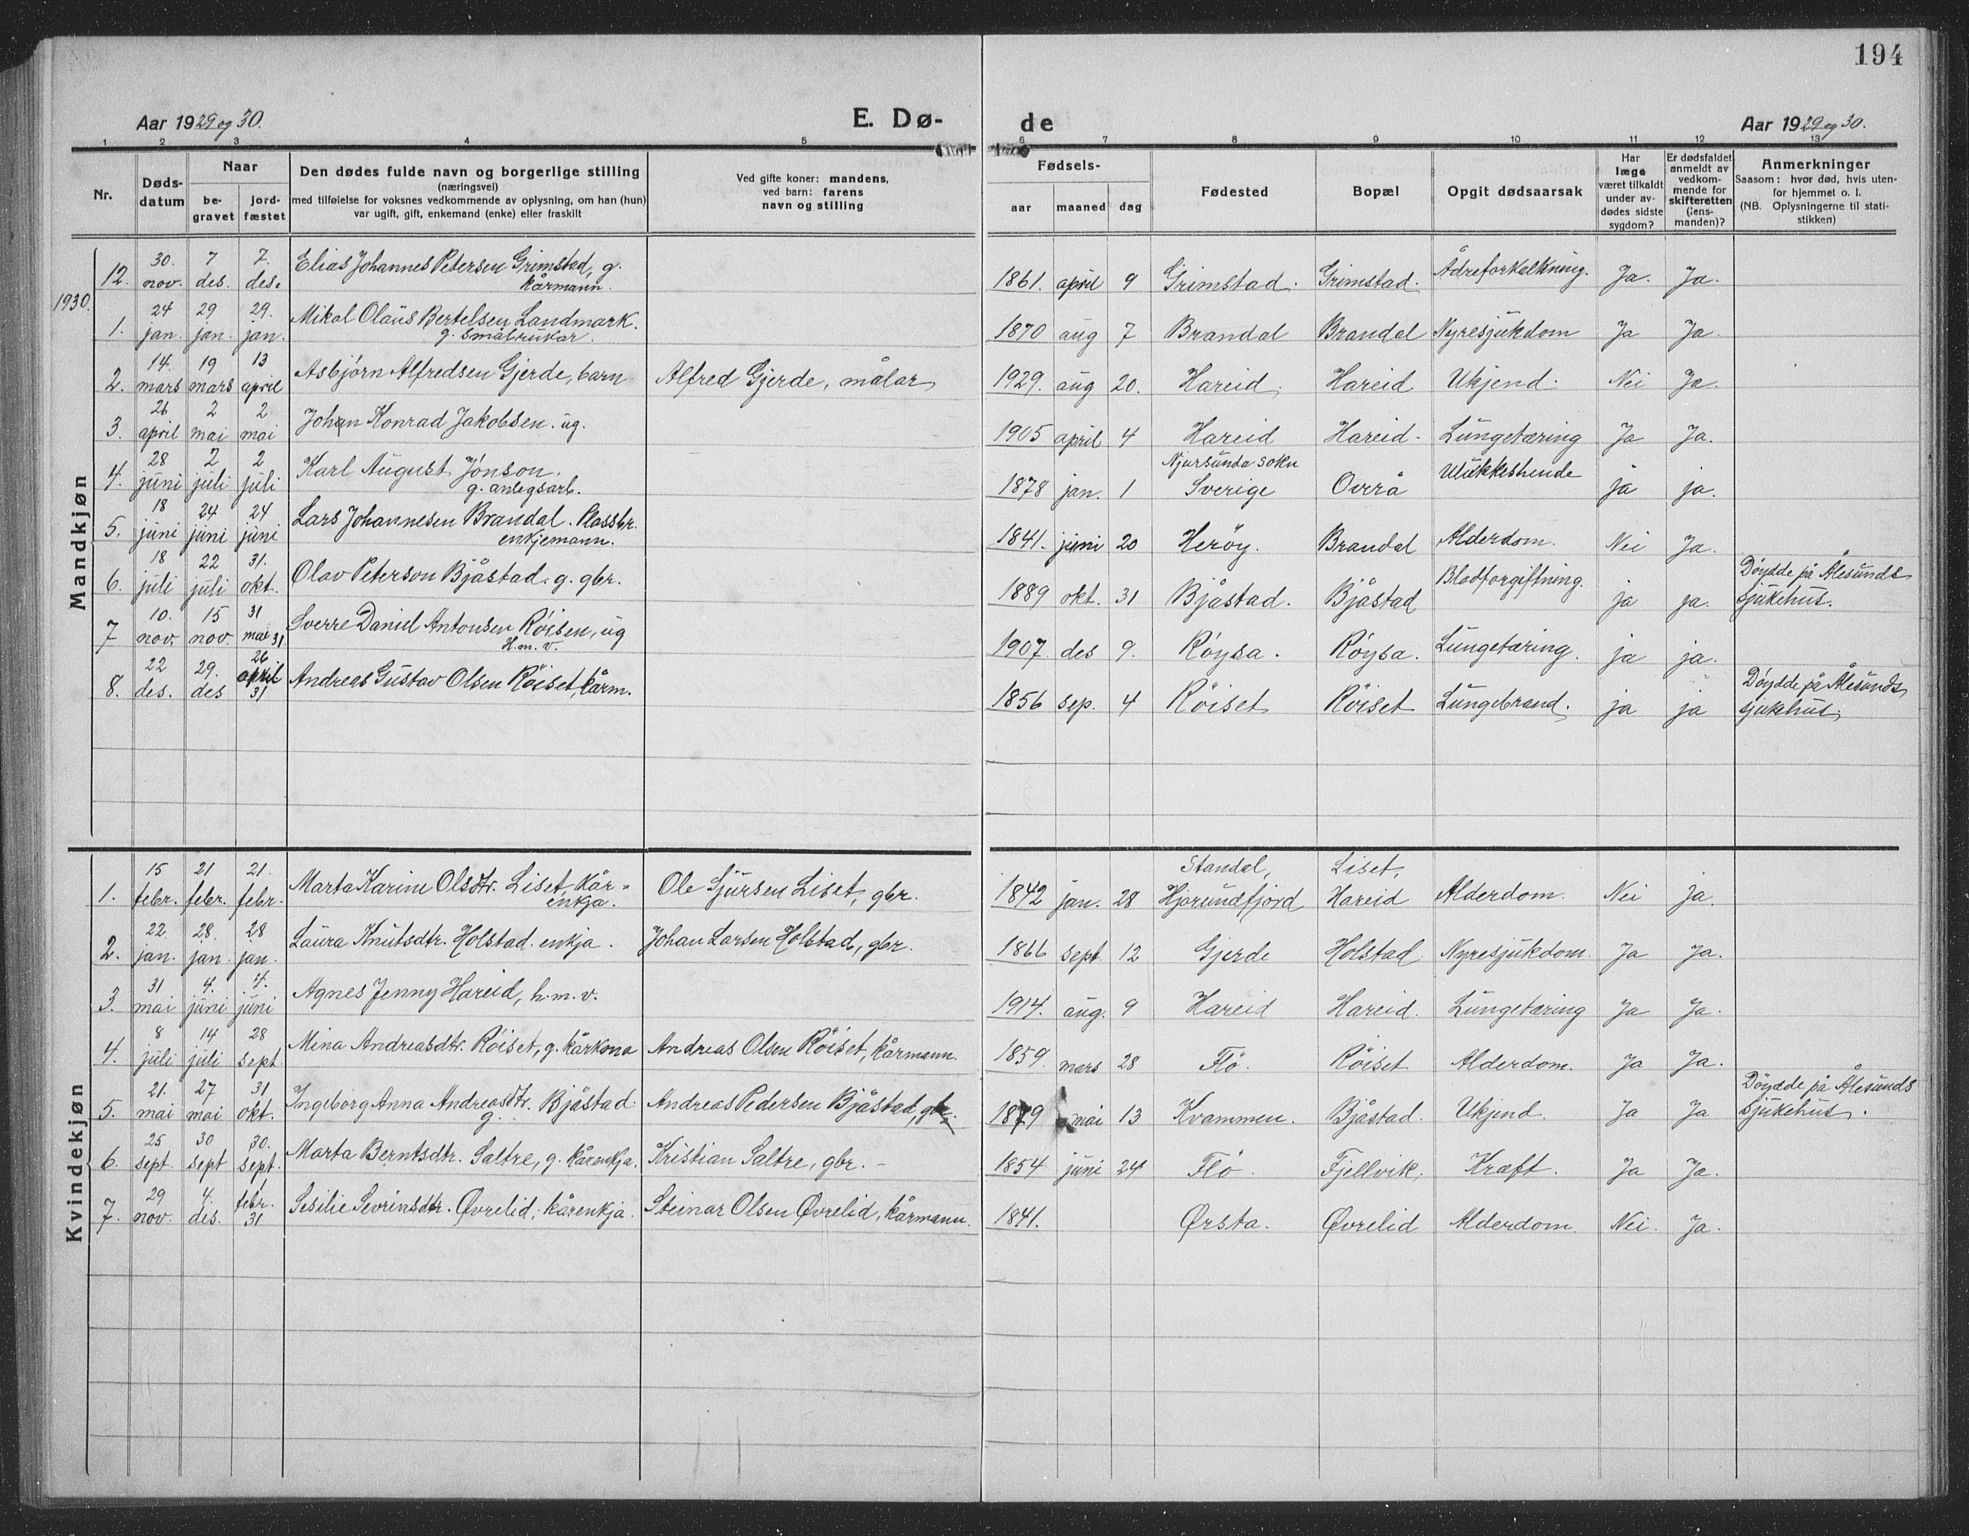 194
Aar 1929 og 30.
E. Dø-
de
Aar 1929 og 30.
1 2 3 4 5 6 7 8 9 10 11 12 13
Nr.
Døds-
datum
Naar
be-
gravet
jord-
fæstet
Den dødes fulde navn og borgerlige stilling
(næringsvei)
med tilføielse for voksnes vedkommende av oplysning, om han (hun)
var ugift, gift, enkemand (enke) eller fraskilt
Ved gifte koner: mandens,
ved barn: farens
navn og stilling
Fødsels-
aar maaned dag
Fødested
Bopæl
Opgit dødsaarsak
Har
læge
været tilkaldt
under av-
dødes sidste
sygdom?
Er dødsfaldet
anmeldt av
vedkom-
mende for
skifteretten
(lens-
manden)?
Anmerkninger
Saasom: hvor død, hvis uten-
for hjemmet o. l.
(NB. Oplysningerne til stati-
stikken)
Mandkjøn
12. 30. nov. 7 des. 7. des. Elias Johannes Petersen Grimstad, g.
kårmann.
1861. april 9 Grimstad. Grimstad. Ådreforkalkning. Ja. Ja.
1930.
1. 24 jan. 29 jan. 29. jan. Mikal Olaus Bertelsen Landmark.
g. småbrukar.
1870 aug 7 Brandal Brandal Nyresjukdom Ja Ja.
2. 14. mars 19 mars 13 april Asbjørn Alfredsen Gjerde, barn Alfred Gjerde, målar 1929. aug 20. Hareid. Hareid. Ukjend. Nei Ja.
3. 26 april 2 mai 2 mai Johan Konrad Jakobsen. ug. 1905 april 4 Hareid Hareid. Lungetæring Ja Ja.
4. 28 juni 2 juli 2 juli Karl August Jonson.
g. anlegsarb.
1878 jan. 1 Njursunda sokn
Sverige Overå Ulukkeshende ja ja.
5. 18 juni 24 juni 24 juni Lars Johannesen Brandal. Plassbr.
enkjemann.
1841. juni 20 Herøy. Brandal Alderdom. Nei Ja.
6. 18 juli 22 juli 31. okt. Olav Peterson Bjåstad. g. gbr. 1889 okt. 31 Bjåstad. Bjåstad Blodforgiftning. ja ja. Døydde på Ålesunds
sjukehus.
7 10. nov. 15 nov. 31 mai 31 Sverre Daniel Antonsen Röisen, ug
H.m.v.
1907 des 9. Röysa. Röysa. Lungetæring. ja ja.
8. 22 des. 29. des 26 april 31 Andreas Gustav Olsen Röiset, kårm. 1856 sep. 4 Röiset Röiset Lungebrand. ja ja Døydde på Ålesunds
sjukehus.
Kvindekjøn
1. 15 febr. 21 febr. 21. febr. Marta Karine Olsdtr. Liset, kår-
enkja.
Ole Sjursen Liset, gbr. 1842 jan. 28 Standal,
Hjørundfjord Liset,
Hareid Alderdom. Nei ja.
2. 22. jan. 28. jan. 28 jan. Laura Knutsdtr. Holstad. enkja. Johan Larsen Holstad, gbr. 1866 sept. 12 Gjerde Holstad. Nyresjukdom. Ja Ja.
3. 31 mai 4. juni 4. juni Agnes Jenny Hareid, h.m.v. 1914. aug. 9 Hareid Hareid. Lungetæring Ja Ja.
4. 8 juli 14 juli 28 sept. Mina Andreasdtr. Röiset, g. kårkona Andreas Olsen Röiset, kårmann. 1859. mars 28 Flö. Röiset Alderdom. Ja Ja.
5. 21. mai 27 mai 31 okt. Ingeborg Anna Andreasdtr. Bjåstad
g.
Andreas Pedersen Bjåstad, gbr. 1879 mai 13 Kvammen. Bjåstad. Ukjend. Ja Ja Døydde på Ålesunds
sjukehus.
6. 25 sept. 30 sept 30. sept. Marta Berntsdtr. Saltre, g. kårenkja. Kristian Saltre, gbr. - 1854 juni 24 Flö. Fjellvik. Kræft. Ja Ja.
7. 29 nov. 4. des. febr. 31 Sesilie Sevrinsdtr. Øvrelid, kårenkja. Steinar Olsen Øvrelid, kårmann. 1841. Ørsta. Øvrelid Alderdom. Nei. Ja.